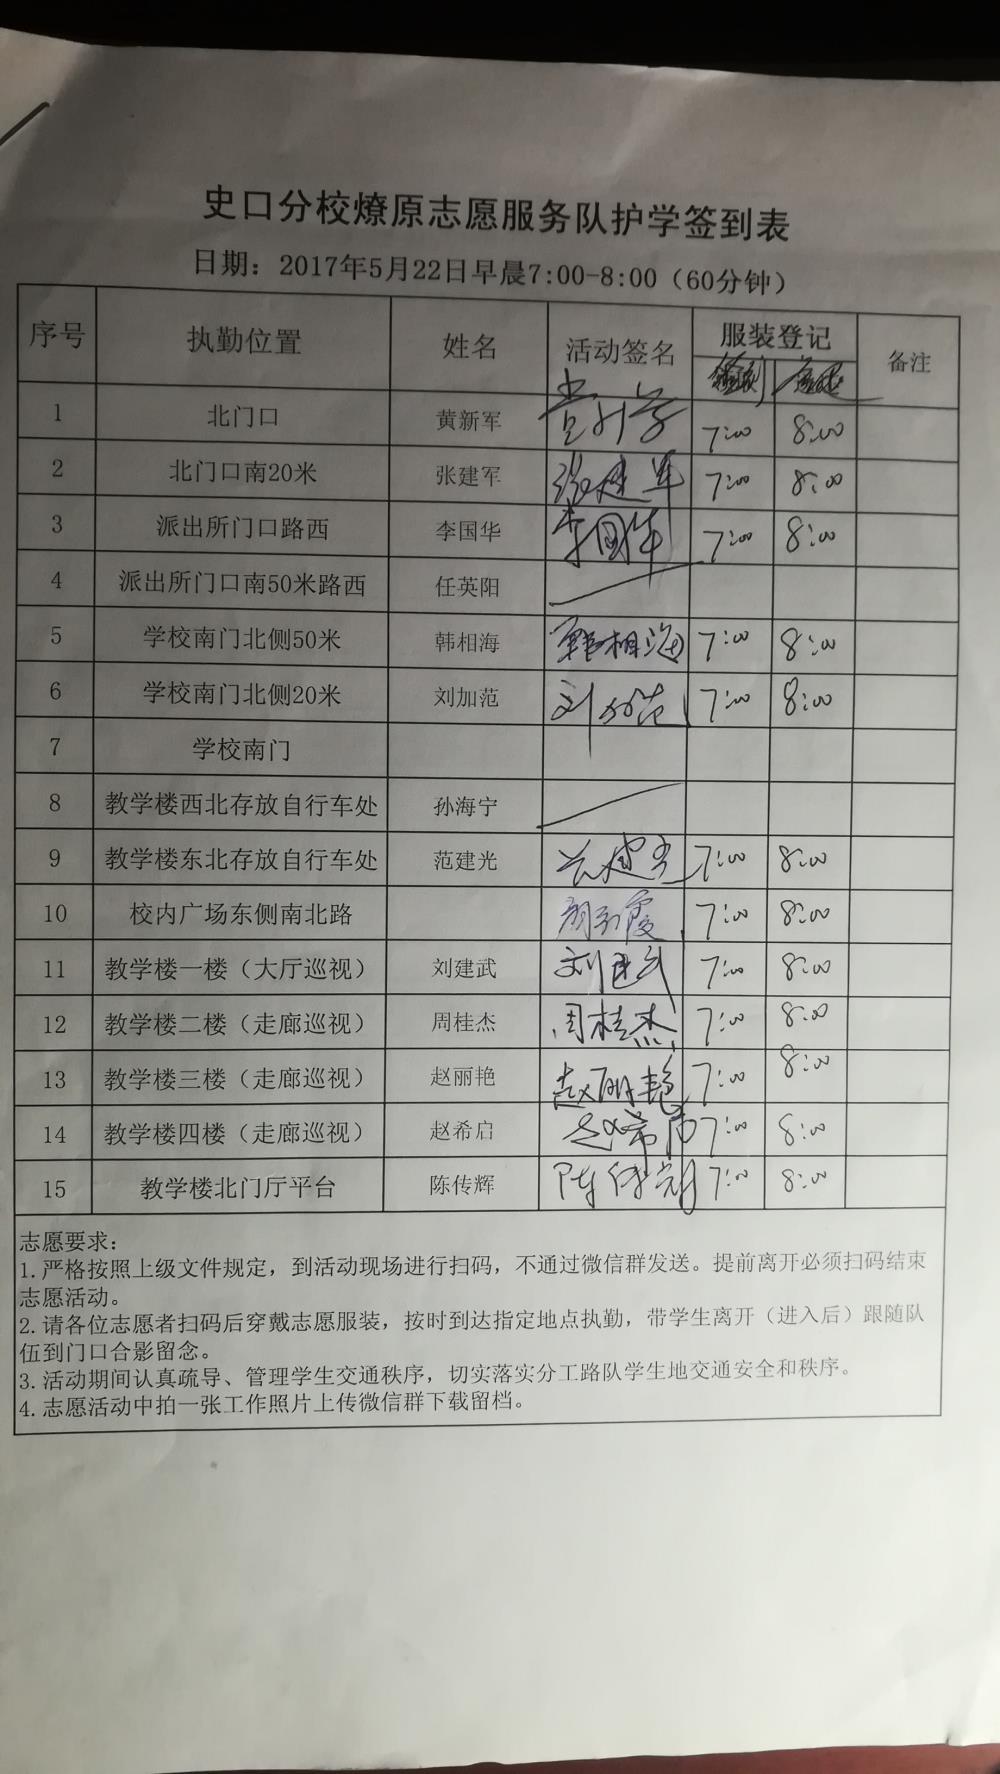 史口分校燎原志愿服务队护学签到表
日期：2017年5月22日早晨7:00-8:00（60分钟）
序号 执勤位置 姓名 活动签名 服装登记 备注
1 北门口 黄新军 7:00 8:00
2 北门口南20米 张建军 张建军 7:00 8:00
3 派出所门口路西 李国华 李国华 7:00 8:00
4 派出所门口南50米路西 任英阳
5 学校南门北侧50米 韩相海 韩相海 7:00 8:00
6 学校南门北侧20米 刘加范 刘加范 7:00 8:00
7 学校南门
8 教学楼西北存放自行车处 孙海宁
9 教学楼东北存放自行车处 范建光 7:00 8:00
10 校内广场东侧南北路 7:00 8:00
11 教学楼一楼（大厅巡视） 刘建武 刘建武 7:00 8:00
12 教学楼二楼（走廊巡视） 周桂杰 周桂杰 7:00 8:00
13 教学楼三楼（走廊巡视） 赵丽艳 赵丽艳 7:00 8:00
14 教学楼四楼（走廊巡视） 赵希启 赵希启 7:00 8:00
15 教学楼北门厅平台 陈传辉 陈传辉 7:00 8:00
志愿要求：
1.严格按照上级文件规定，到活动现场进行扫码，不通过微信群发送。提前离开必须扫码结束
志愿活动。
2.请各位志愿者扫码后穿戴志愿服装，按时到达指定地点执勤，带学生离开（进入后）跟随队
伍到门口合影留念。
3.活动期间认真疏导、管理学生交通秩序，切实落实分工路队学生地交通安全和秩序。
4.志愿活动中拍一张工作照片上传微信群下载留档。